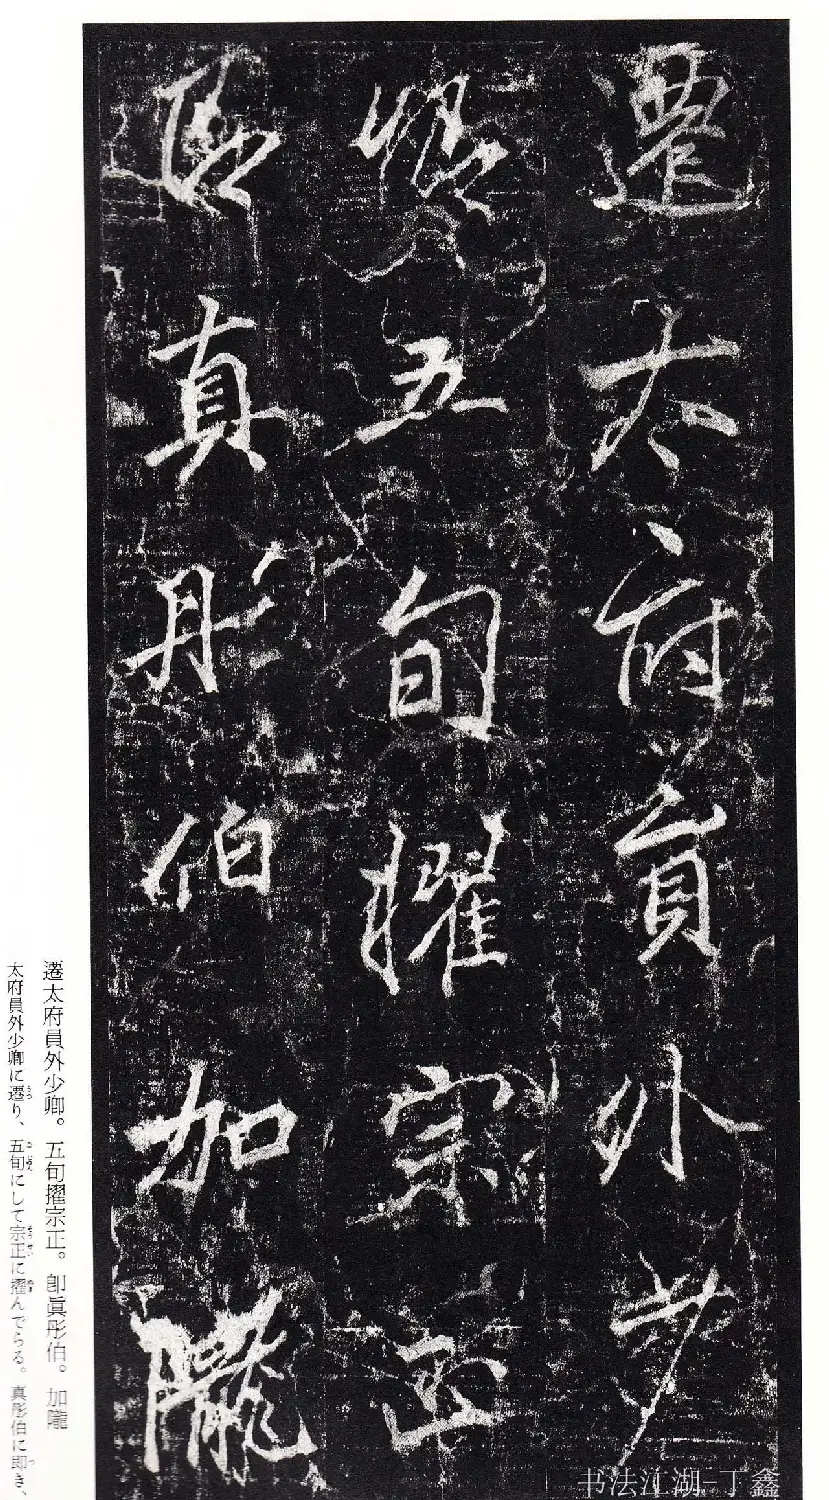 遷太府員外少
卿五旬擢宗正
即真彤伯加隴
遷太府員外少卿。五旬擢宗正。卽眞彤伯。加隴
太府員外少卿に遷り、五旬にして宗正に擢んでらる。真彤伯に即き、
书法江湖-丁鑫